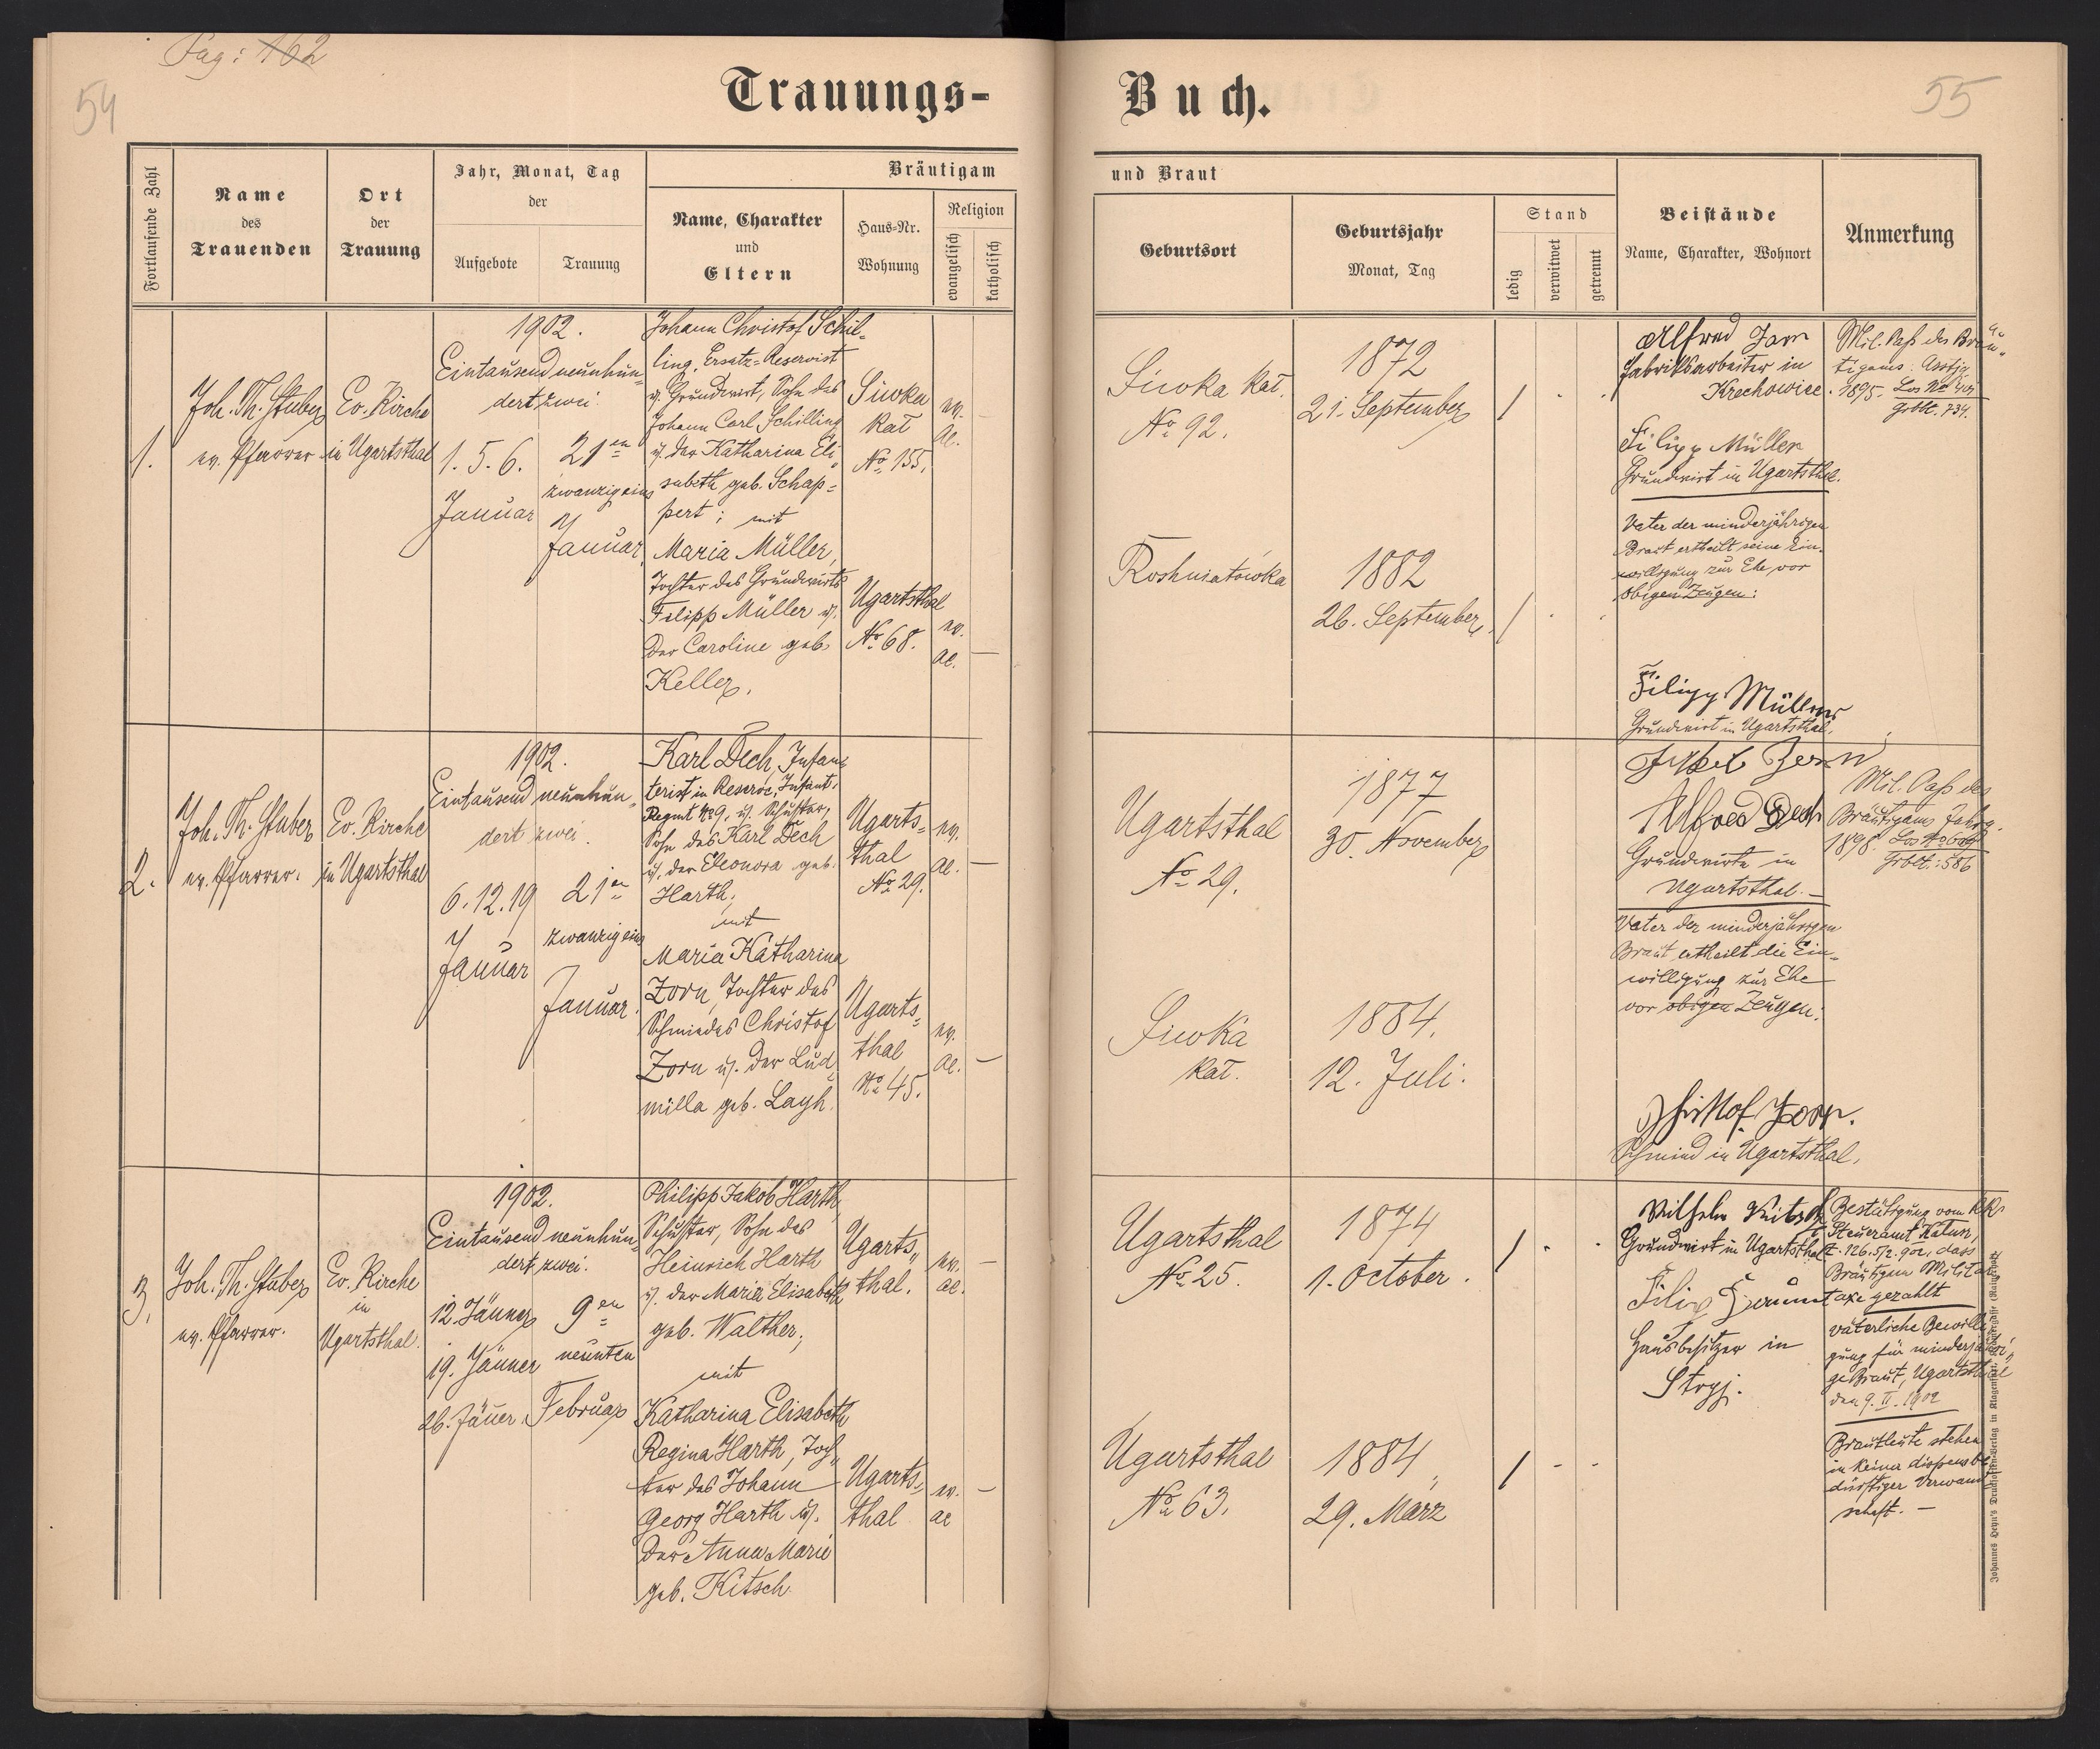 Pag: 162
54
55
Trauungs-
Buch.
Fortlaufende Zahl
Name
des
Trauenden
Ort
der
Trauung
Jahr, Monat, Tag
der
Aufgebote
Trauung
Bräutigam
Name, Charakter
und
Eltern
Haus-Nr.
Wohnung
Religion
evangelisch
katholisch
und Braut
Geburtsort
Geburtsjahr
Monat, Tag
Stand
ledig
verwitwet
getrennt
Beistände
Name, Charakter, Wohnort
Anmerkung
1.
Joh. Th. Stuber
ev. Pfarrer
Ev. Kirche
in Ugartsthal
1902.
Eintausend neunhun-
dert zwei.
1. 5. 6.
Januar
21en
zwanzigeins
Januar
Johann Christof Schil-
ling, Ersatz-Reservist
u. Grundwirt, Sohn des
Johann Carl Schilling
u. der Katharina Eli-
sabeth geb. Schap-
pert; mit
Maria Müller,
Tochter des Grundwirts
Filipp Müller u.
der Caroline geb.
Keller.
Siwka
Kat
No 155.
ev.
ac.
Ugartsthal
No 68.
ev.
ac. —
Siwka Kat.
No 92.
1872
21. September
Roshniatówka
1882
26. September
Alfred
Fabriksarbeiter in
Krechowice.
Filipp Müller
Grundwirt in Ugartsthal.
Vater der minderjährigen
Braut ertheilt seine Ein-
willigung zur Ehe vor
obigen Zeugen:
Filipp Müller
Grundwirt in Ugartsthal.
Mil. Paß des Bräu-
tigams:
1895.
Grbbl. 734.
2.
Joh. Th. Stuber
ev. Pfarrer.
Ev. Kirche
in Ugartsthal
1902.
Eintausend neunhun-
dert zwei.
6. 12. 19
Januar
21en
zwanzigeins
Januar.
Karl Dech, Infan-
terist in Reserve, Infant.
Regmt No 9, u. Schuster,
Sohn des Karl Dech
u. der Eleonora geb.
Harth;
mit
Maria Katharina
Zorn, Tochter des
Schmiedes Christof
Zorn u. der Lud-
milla geb. Layh.
Ugarts-
thal
No 29.
ev.
ac. —
Ugarts-
thal
No 45.
ev.
ac. —
Ugartsthal
No 29.
1877
30. November
Siwka
Kat.
1884.
12. Juli.
Alfred Dech
Grundwirte in
Ugartsthal. —
Vater der minderjährigen
Braut, ertheilt die Ein-
willigung zur Ehe
vor obigen Zeugen:
Christof Zorn.
Schmied in Ugartsthal.
Mil. Paß des
Bräutigams Jahrg.
1898.
Grbbl.: 586
3.
Joh. Th. Stuber
ev. Pfarrer.
Ev. Kirche
in
Ugartsthal.
1902.
Eintausend neunhun-
dert zwei.
12. Jänner
19. Jänner
26. Jäner
9en
neunten
Februar
Philipp Jakob Harth,
Schuster, Sohn des
Heinrich Harth
u. der Maria Elisabeth
geb. Walther;
mit
Katharina Elisabeth
Regina Harth, Toch-
ter des Johann
Georg Harth u.
der Anna Marie
geb. Kitsch.
Ugarts-
thal.
ev. —
ac.
Ugarts-
thal
ev. —
ac
Ugartsthal
No 25.
1874
1. October.
Ugartsthal
No 63.
1884
29. März
Wilhelm Kitsch
Grundwirt in Ugartsthal
Filip
Hausbesitzer in
Stryj.
Bestätigung vom kk.
Steueramt Kalusz,
Z. 126. 5/2. 902, dass
Bräutigam Milit
taxe gezahlt
väterliche Bewilli-
gung für minderjähri-
ge Braut, Ugartsthal
den 9. II. 1902
Brautleute stehen
in keiner dispensbe-
dürftiger Verwand-
schaft. —